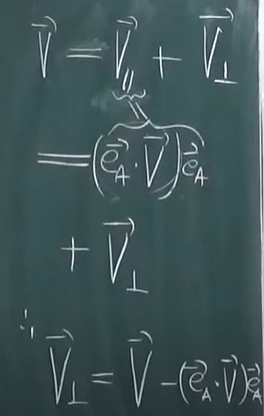 V⃗ = V⃗∥ + V⃗⊥
= (e⃗A · V⃗) e⃗A
+ V⃗⊥
∴
V⃗⊥ = V⃗ − (e⃗A · V⃗) e⃗A